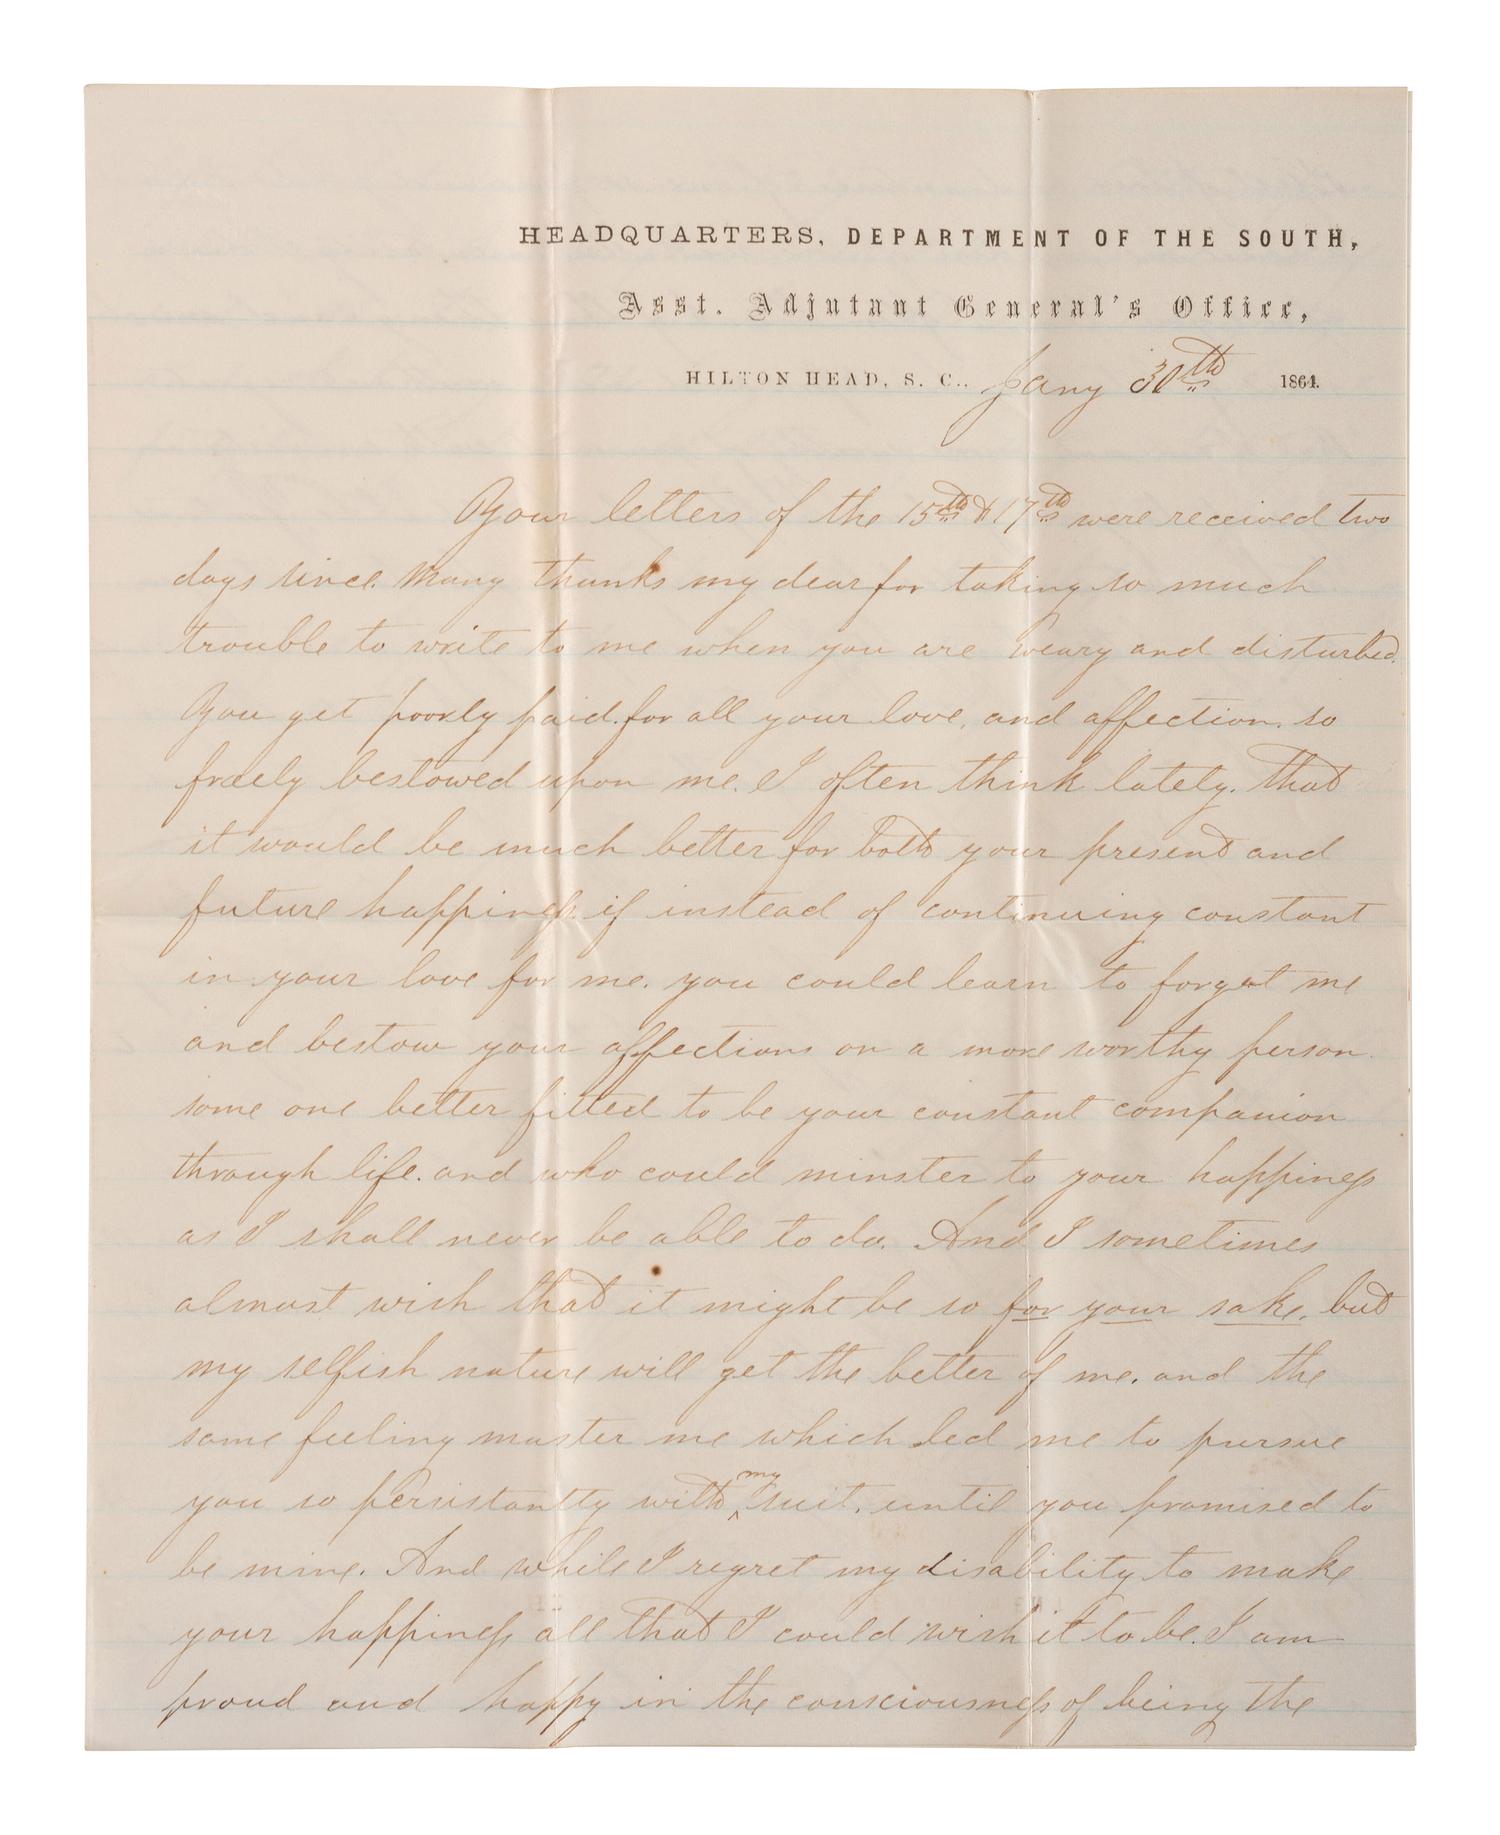 HEADQUARTERS, DEPARTMENT OF THE SOUTH,
Asst. Adjutant General's Office,
HILTON HEAD, S. C., Jany 30th 1864.
Your letters of the 15th & 17th were received two
days since. Many thanks my dear for taking so much
trouble to write to me when you are weary and disturbed.
You get poorly paid. for all your love, and affection. so
freely bestowed upon me. I often think lately. that
it would be much better for both your present and
future happiness. if instead of continuing constant
in your love for me. you could learn to forget me
and bestow your affections on a more worthy person.
some one better fitted to be your constant companion
through life. and who could minster to your happiness
as I shall never be able to do. And I sometimes
almost wish that it might be so for your sake. but
my selfish nature will get the better of me. and the
same feeling master me which led me to pursue
you so persistantly with my suit. until you promised to
be mine. And while I regret my disability to make
your happiness all that I could wish it to be. I am
proud and happy in the consciousness of being the